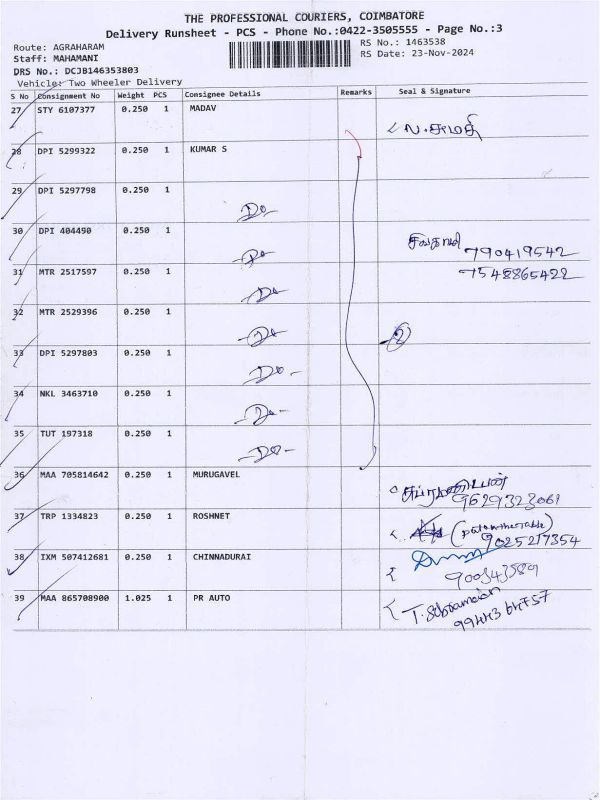 THE PROFESSIONAL COURIERS, COIMBATORE
Delivery Runsheet - PCS - Phone No.:0422-3505555 - Page No.:3
Route: AGRAHARAM
RS No.: 1463538
Staff: MAHAMANI
RS Date: 23-Nov-2024
DRS No.: DCJB146353803
Vehicle: Two Wheeler Delivery
S No Consignment No Weight PCS Consignee Details Remarks Seal & Signature
27 STY 6107377 0.250 1 MADAV
28 DPI 5299322 0.250 1 KUMAR S
29 DPI 5297798 0.250 1 Do
30 DPI 404490 0.250 1 Do 790419542
31 MTR 2517597 0.250 1 Do 7548865422
32 MTR 2529396 0.250 1 Do
33 DPI 5297803 0.250 1 Do-
34 NKL 3463710 0.250 1 Do-
35 TUT 197318 0.250 1 Do-
36 MAA 705814642 0.250 1 MURUGAVEL 9629323061
37 TRP 1334823 0.250 1 ROSHNET 9025217354
38 IXM 507412681 0.250 1 CHINNADURAI 900343589
39 MAA 865708900 1.025 1 PR AUTO